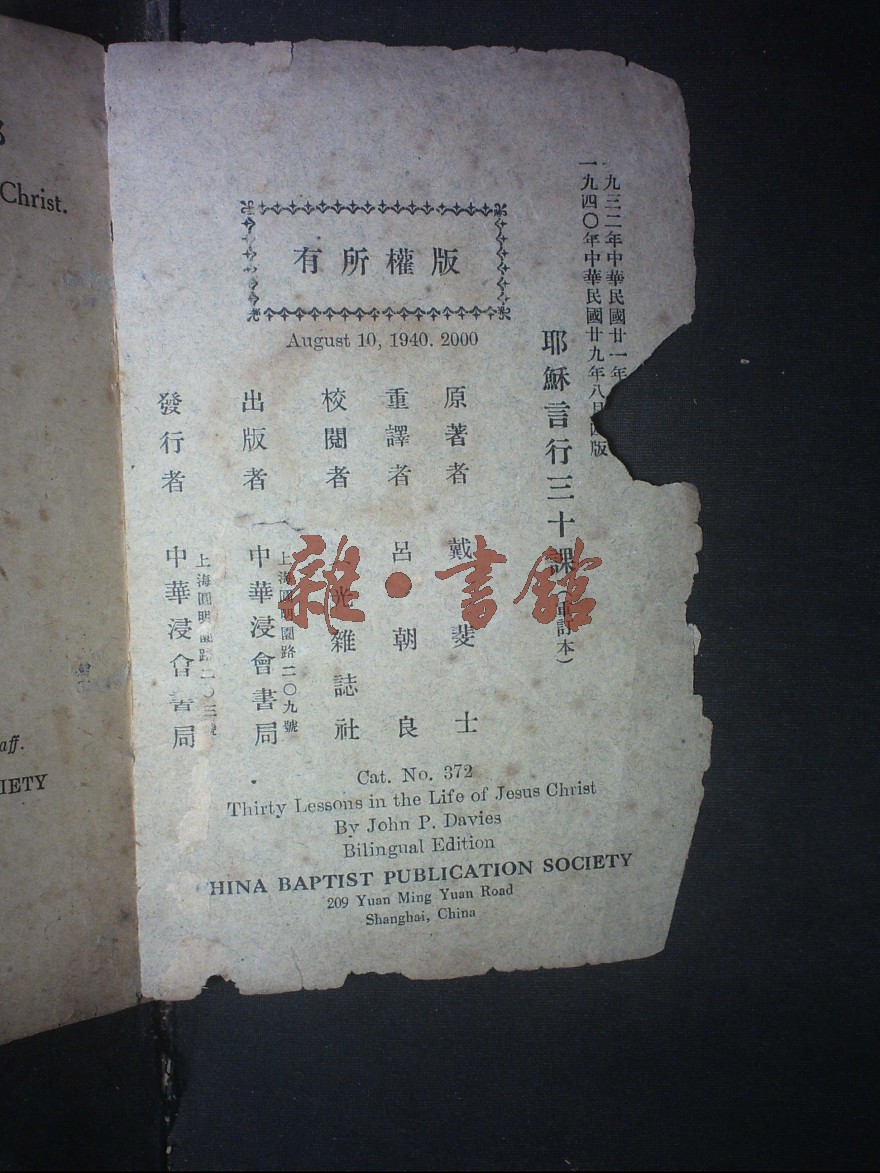 Christ.
aff.
IETY
一九三二年中華民國廿一年
一九四〇年中華民國廿九年八月四版
耶穌言行三十課(重訂本)
版權所有
August 10, 1940. 2000
原著者 戴斐士
重譯者 呂朝良
校閱者 光雜誌社
出版者 中華浸會書局
上海圓明園路二〇九號
發行者 中華浸會書局
上海圓明園路二〇三號
Cat. No. 372
Thirty Lessons in the Life of Jesus Christ
By John P. Davies
Bilingual Edition
HINA BAPTIST PUBLICATION SOCIETY
209 Yuan Ming Yuan Road
Shanghai, China
雜·書館